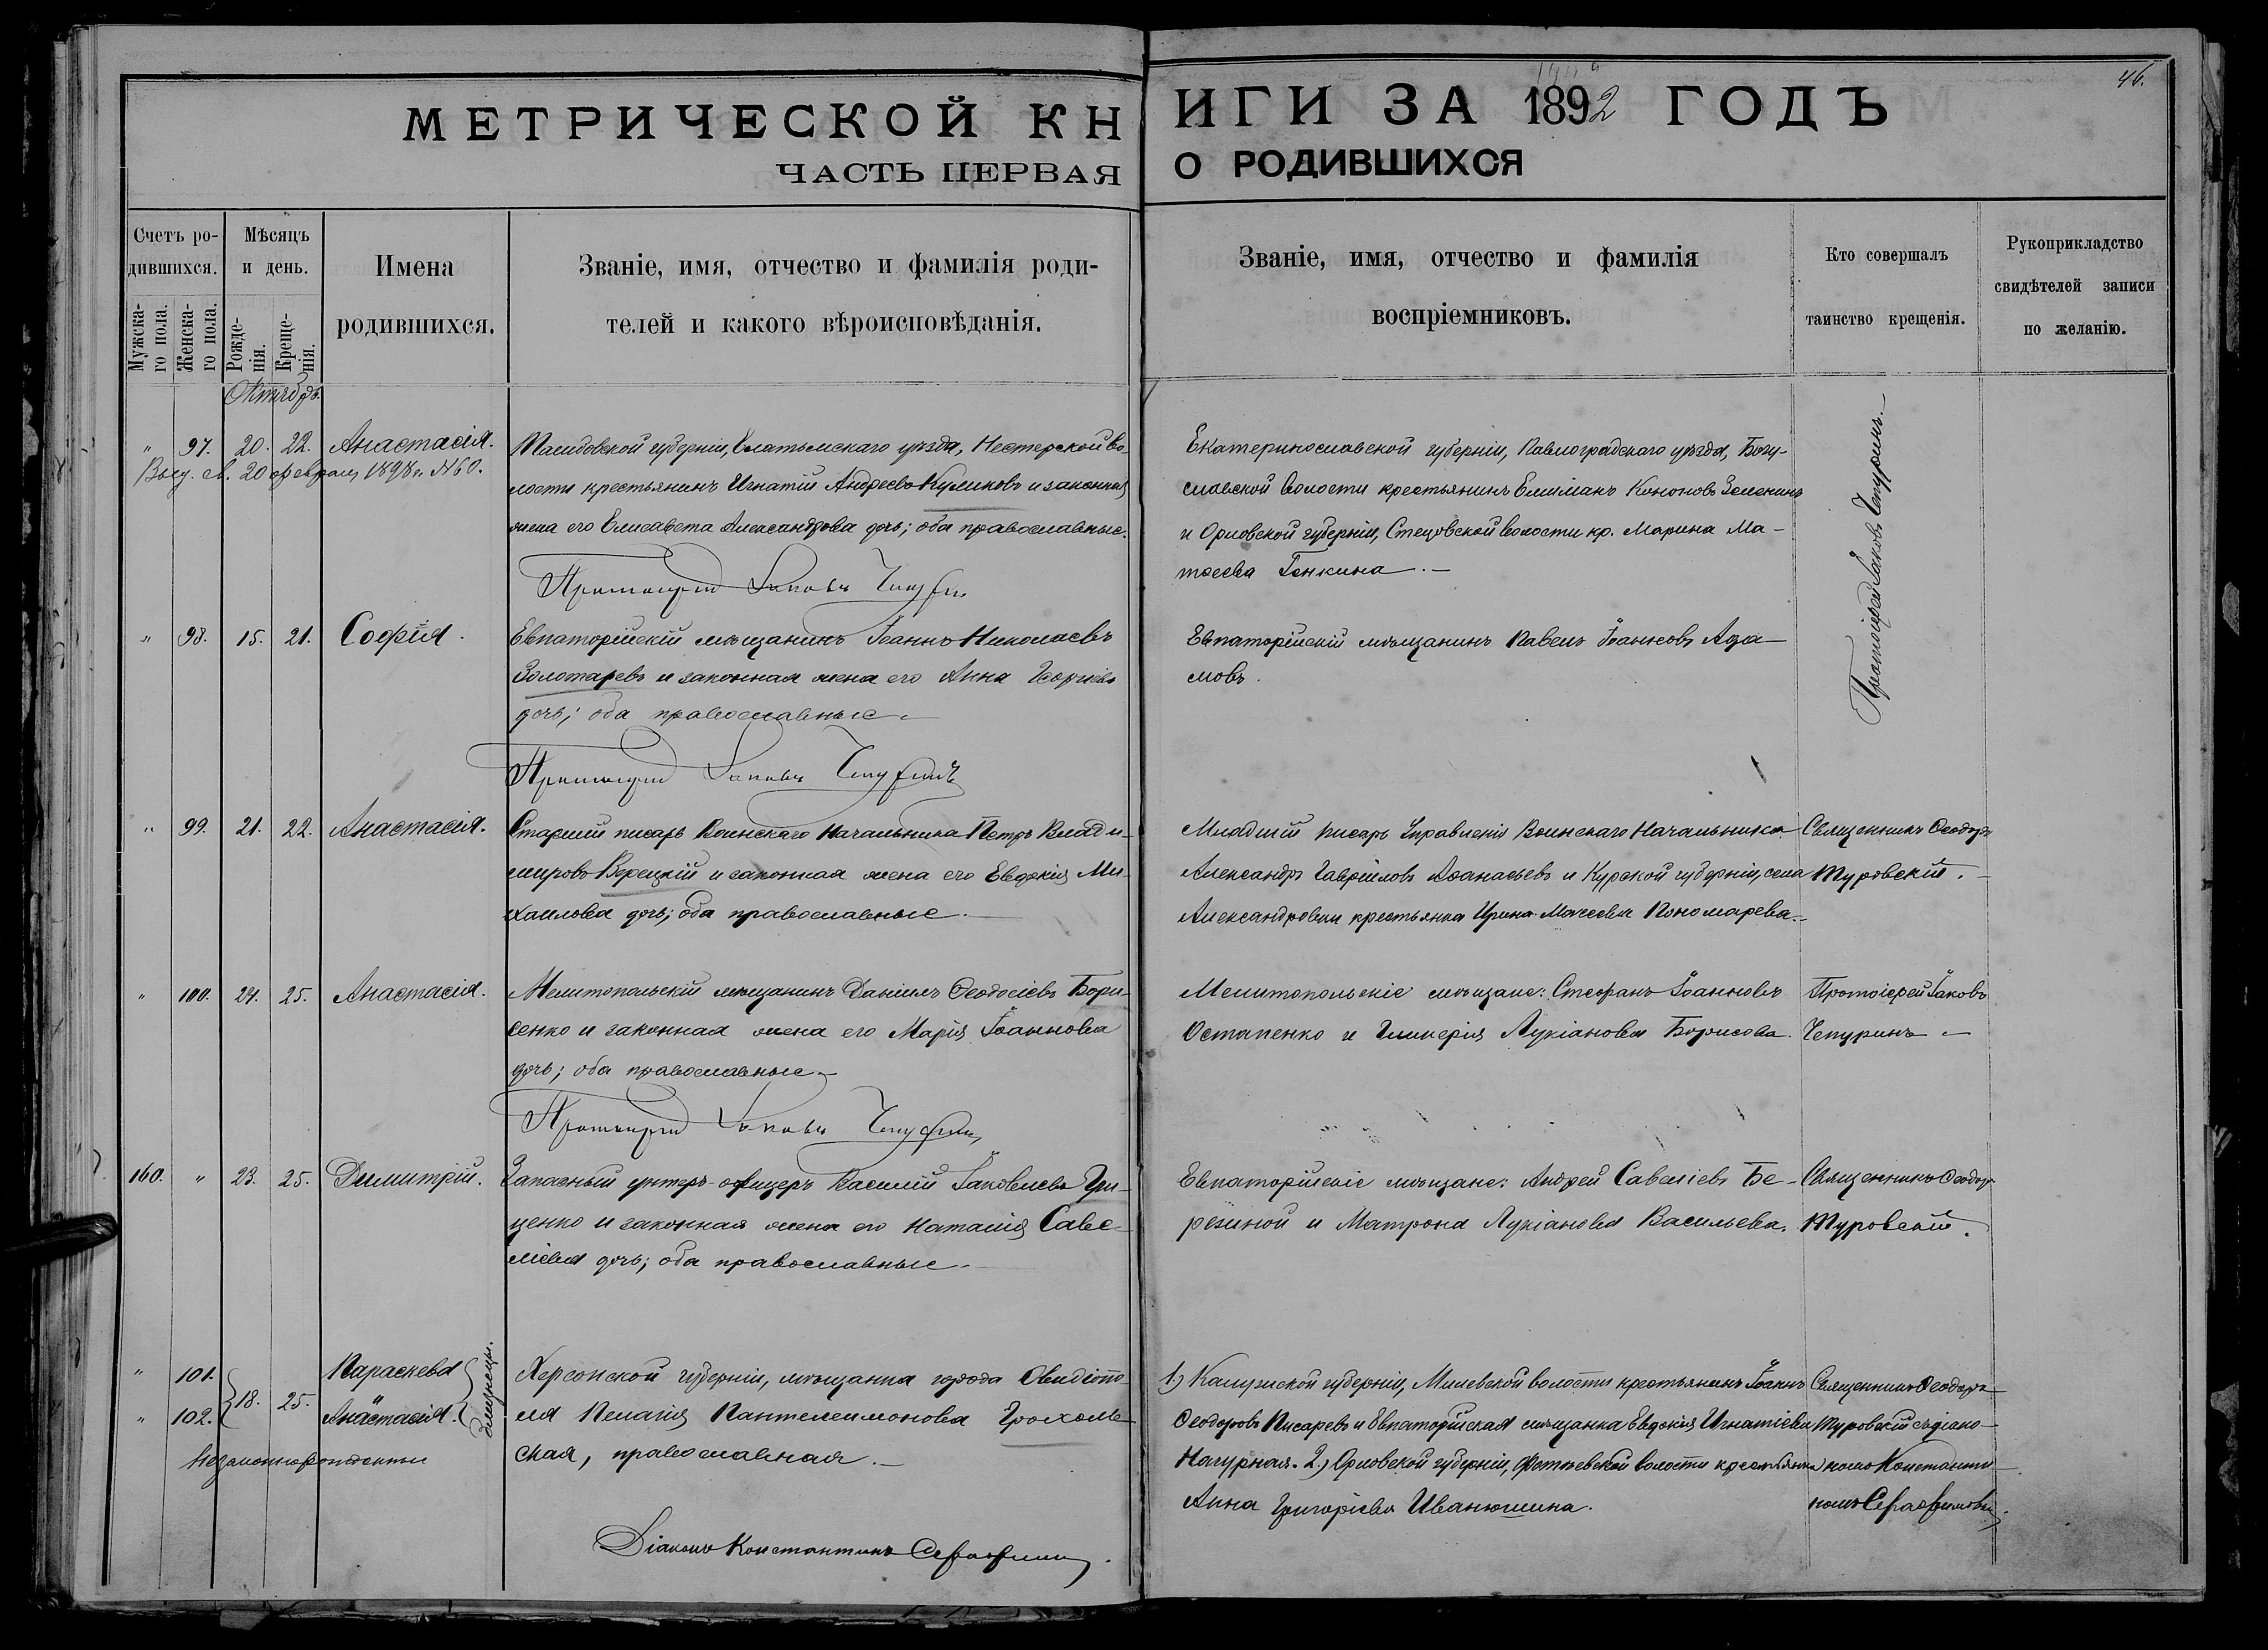 МЕТРИЧЕСКОЙ КНИГИ ЗА 1892 ГОДЪ
46.
ЧАСТЬ ПЕРВАЯ О РОДИВШИХСЯ
Счетъ ро-
дившихся.
Мужска-
го пола.
Женска-
го пола.
Мѣсяцъ
и день.
Рожде-
нія.
Креще-
нія.
Имена
родившихся.
Званіе, имя, отчество и фамилія роди-
телей и какого вѣроисповѣданія.
Званіе, имя, отчество и фамилія
воспріемниковъ.
Кто совершалъ
таинство крещенія.
Рукоприкладство
свидѣтелей записи
по желанію.
Октябрь.
" 97. 20. 22. Анастасія.
Выд. св. 20 февраля 1898 г. № 60.
губерніи, Елатьмскаго уѣзда, Нестерской во-
лости крестьянинъ Игнатій Андреевъ Куликовъ и законная
жена его Елисавета Александрова дочь; оба православные.
Протоіерей Іаковъ Чепуринъ
Екатеринославской губерніи, Павлоградскаго уѣзда, Богу-
славской волости крестьянинъ Кононовъ Зеленинъ
и Орловской губерніи, волости кр. Марина Ма-
тѳеева Генкина.—
Протоіерей Іаковъ Чепуринъ.—
" 98. 15. 21. Софія.
Евпаторійскій мѣщанинъ Іоаннъ Николаевъ
Золотаревъ и законная жена его Анна Георгіева
дочь; оба православные.—
Протоіерей Іаковъ Чепуринъ
Евпаторійскій мѣщанинъ Павелъ Іоанновъ Ада-
мовъ.
" 99. 21. 22. Анастасія.
Старшій писарь Воинскаго Начальника Петръ Влади-
міровъ Верецкій и законная жена его Евдокія Ми-
хаилова дочь; оба православные.
Младшій писарь Управленія Воинскаго Начальника
Александръ Гавріиловъ Аѳанасьевъ и Курской губерніи, села
Александровки крестьянка Ирина Пономарева.—
Священникъ Ѳеодоръ
Туровскій.
" 100. 24. 25. Анастасія.
Мелитопольскій мѣщанинъ Даніилъ Ѳеодосіевъ Бори-
сенко и законная жена его Марія Іоаннова
дочь; оба православные.—
Протоіерей Іаковъ Чепуринъ
Мелитопольскіе мѣщане: Стефанъ Іоанновъ
Остапенко и Гликерія Лукіанова Борисова.
Протоіерей Іаковъ
Чепуринъ.—
160. " 23. 25. Димитрій.
Запасный унтеръ-офицеръ Василій Іаковлевъ Гри-
ценко и законная жена его Наталія Саве-
ліева дочь; оба православные.
Евпаторійскіе мѣщане: Андрей Савеліевъ Бе-
резиной и Матрона Лукіанова Васильева.
Священникъ Ѳеодоръ
Туровскій.
" 101. Параскева
" 102. 18. 25. Анастасія.
близнецы.
Незаконнорожденные
Херсонской губерніи, мѣщанка города Овидіопо-
ля Пелагія Пантелеимонова Грохоль-
ская, православная.—
Діаконъ Константинъ Серафимовъ.
1) Калужской губерніи, Милевской волости крестьянинъ Іоаннъ
Ѳеодоровъ Писаревъ и Евпаторійская мѣщанка Евдокія Игнатіева
Нагурная. 2) Орловской губерніи, волости крестьянка
Анна Григорьева Иванюшина.
Священникъ Ѳеодоръ
Туровскій съ діако-
номъ Константи-
номъ Серафимовымъ.